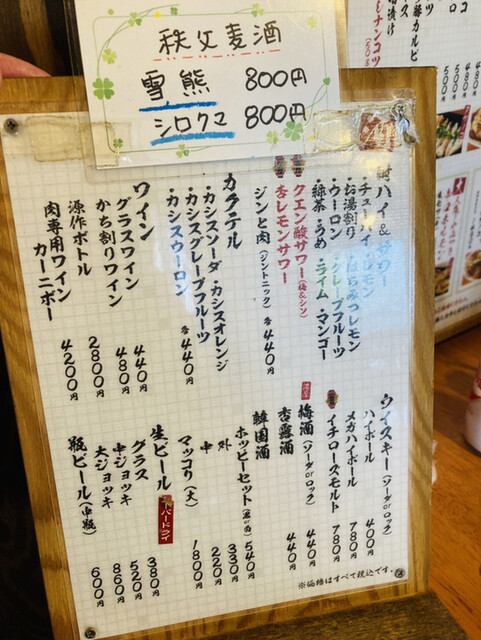 秩父麦酒
雪熊 800円
シロクマ 800円
酎ハイ&サワー
チューハイ・レモン
・お湯割り・はちみつレモン
・ウーロン・グレープフルーツ
・緑茶・うめ・ライム・マンゴー
クエン酸サワー(梅&シン)
・杏レモンサワー
ジンと肉(ジントニック) 各440円
カクテル
・カシスソーダ・カシスオレンジ
・カシスグレープフルーツ
・カシスウーロン 各440円
ワイン
グラスワイン 440円
かち割りワイン 480円
源作ボトル 2800円
肉専用ワイン
カーニボー 4200円
ウイスキー(ソーダorロック)
ハイボール 400円
メガハイボール 780円
イチローズモルト 780円
梅酒(ソーダorロック) 440円
杏露酒 440円
韓国酒
ホッピーセット(黒or白) 540円
外 330円
中 220円
マッコリ(大) 1800円
生ビール スーパードライ
グラス 380円
中ジョッキ 520円
大ジョッキ 860円
瓶ビール(中瓶) 600円
※価格はすべて税込です。